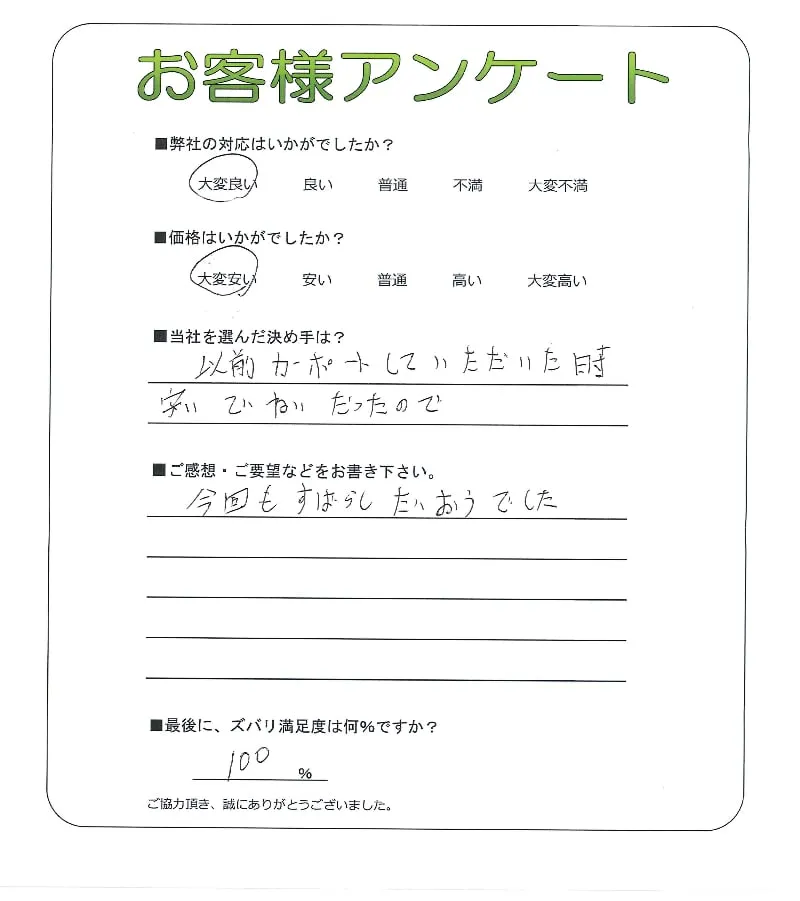 お客様アンケート
■弊社の対応はいかがでしたか?
大変良い 良い 普通 不満 大変不満
■価格はいかがでしたか?
大変安い 安い 普通 高い 大変高い
■当社を選んだ決め手は?
以前カーポートしていただいた時
安い ていねい だったので
■ご感想・ご要望などをお書き下さい。
今回も すばらし たいおうでした
■最後に、ズバリ満足度は何%ですか?
100 %
ご協力頂き、誠にありがとうございました。